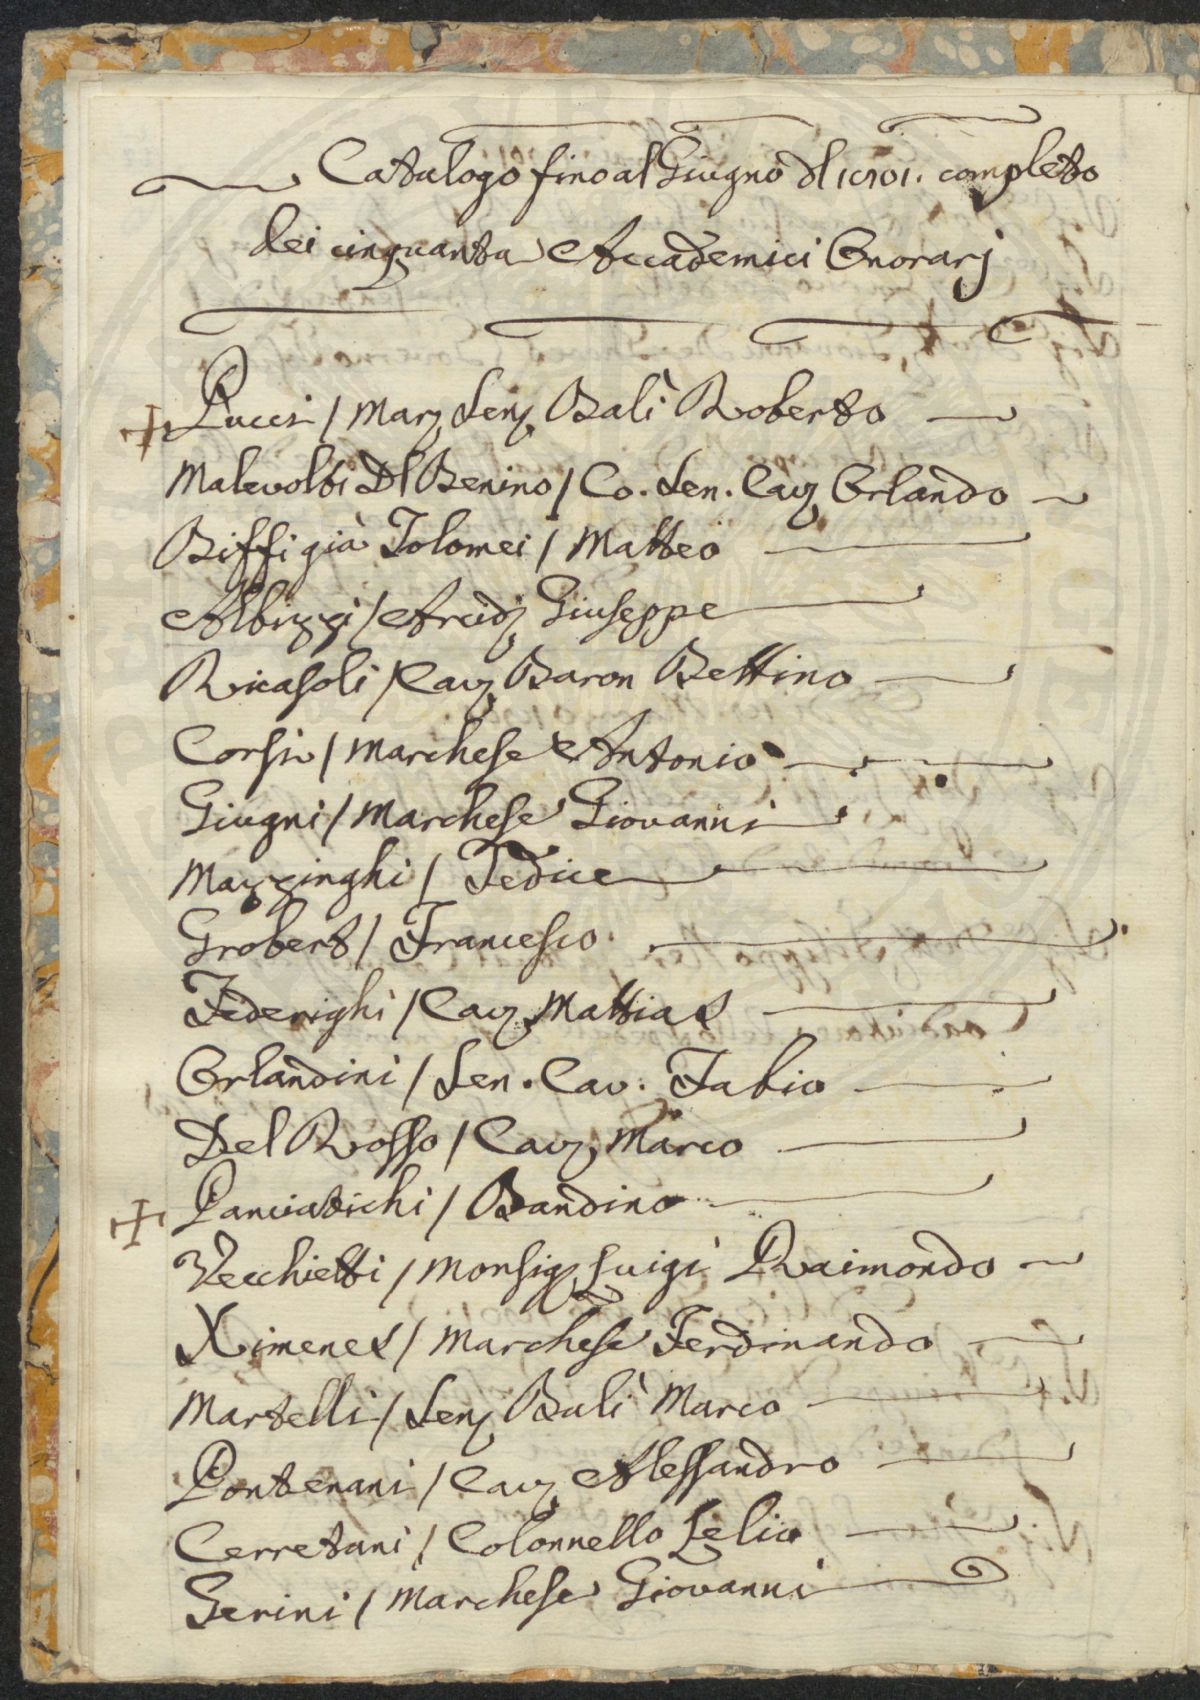 Catalogo fino al Giugno dl completo
dei cinquanta Accademici Onorarj
Pucci / Marz Senz Balì Roberto
Malevolti Dl Benino / Co. Sen. Cavz Orlando
Biffi già Tolomei / Matteo
Albizzi / Arcidz Giuseppe
Ricasoli / Cavz Baron Bettino
Corsi / Marchese Antonio
Giugni / Marchese Giovanni
Mazzinghi / Tedice
Grobert / Francesco
Federighi / Cavz Mattias
Orlandini / Sen. Cav. Fabio
Del Rosso / Cavz Marco
Panciatichi / Bandino
Vecchietti / Monsigz Luigi Raimondo
Ximenes / Marchese Ferdinando
Martelli / Senz Balì Marco
Pontenani / Cavz Alessandro
Cerretani / Colonnello Lelio
Gerini / Marchese Giovanni